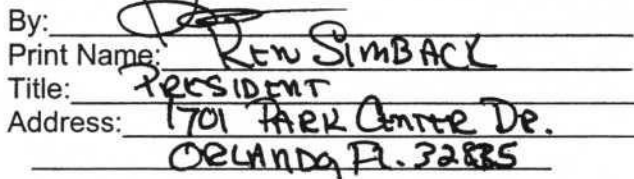 By:
Print Name: Ken SIMBACK
Title: PRESIDENT
Address: 1701 PARK CENTER DR.
ORLANDO, FL. 32835